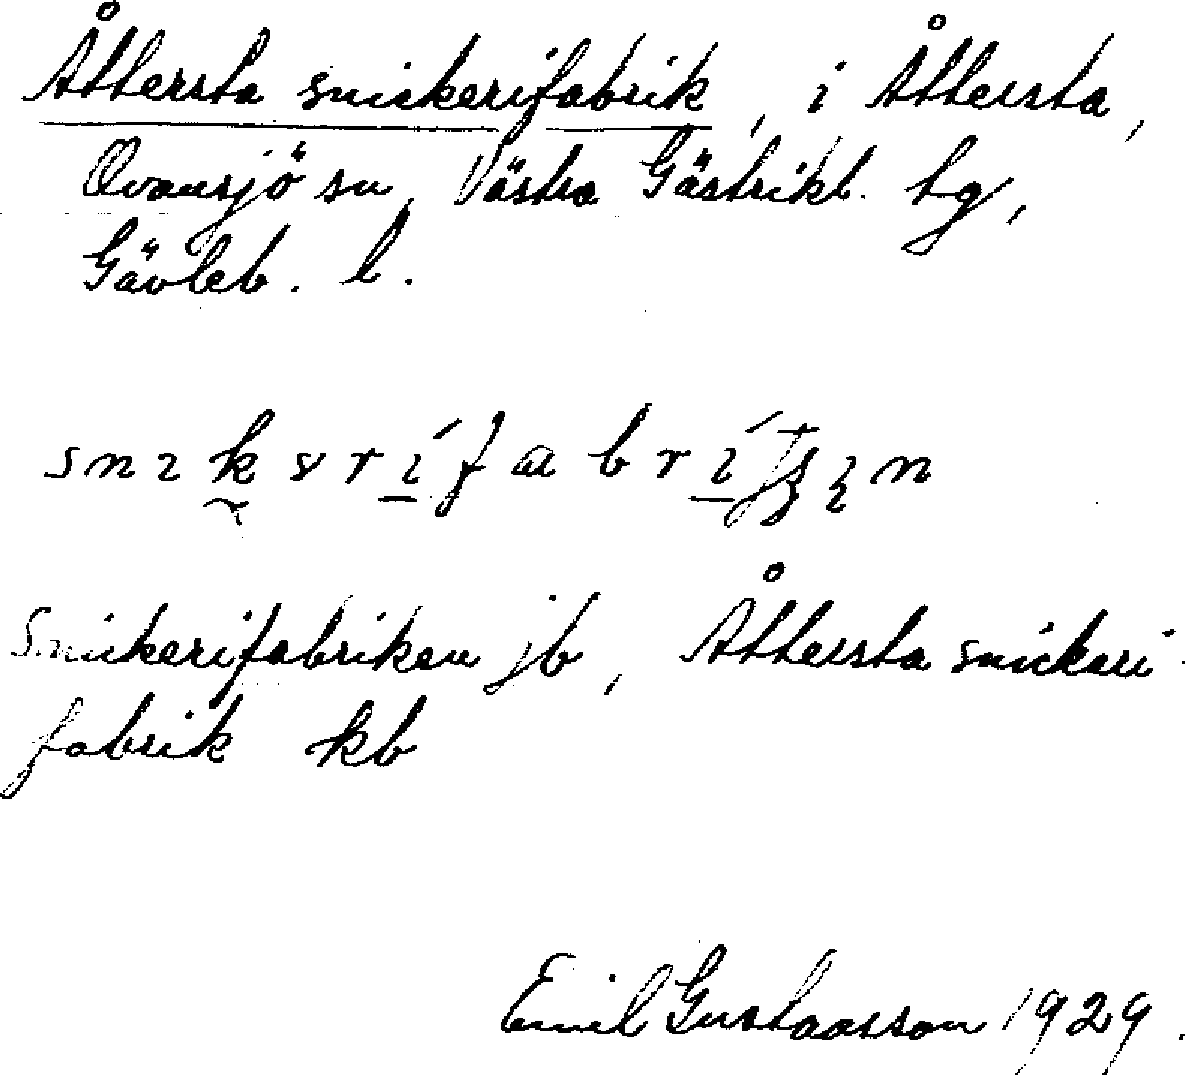 Åttersta snickerifabrik, i Åttersta,
Ovansjö sn, Västra Gästrikl. tg,
Gävleb. l.
Snickerifabriken jb, Åttersta snickeri-
fabrik kb
Emil Gustavsson 1929.